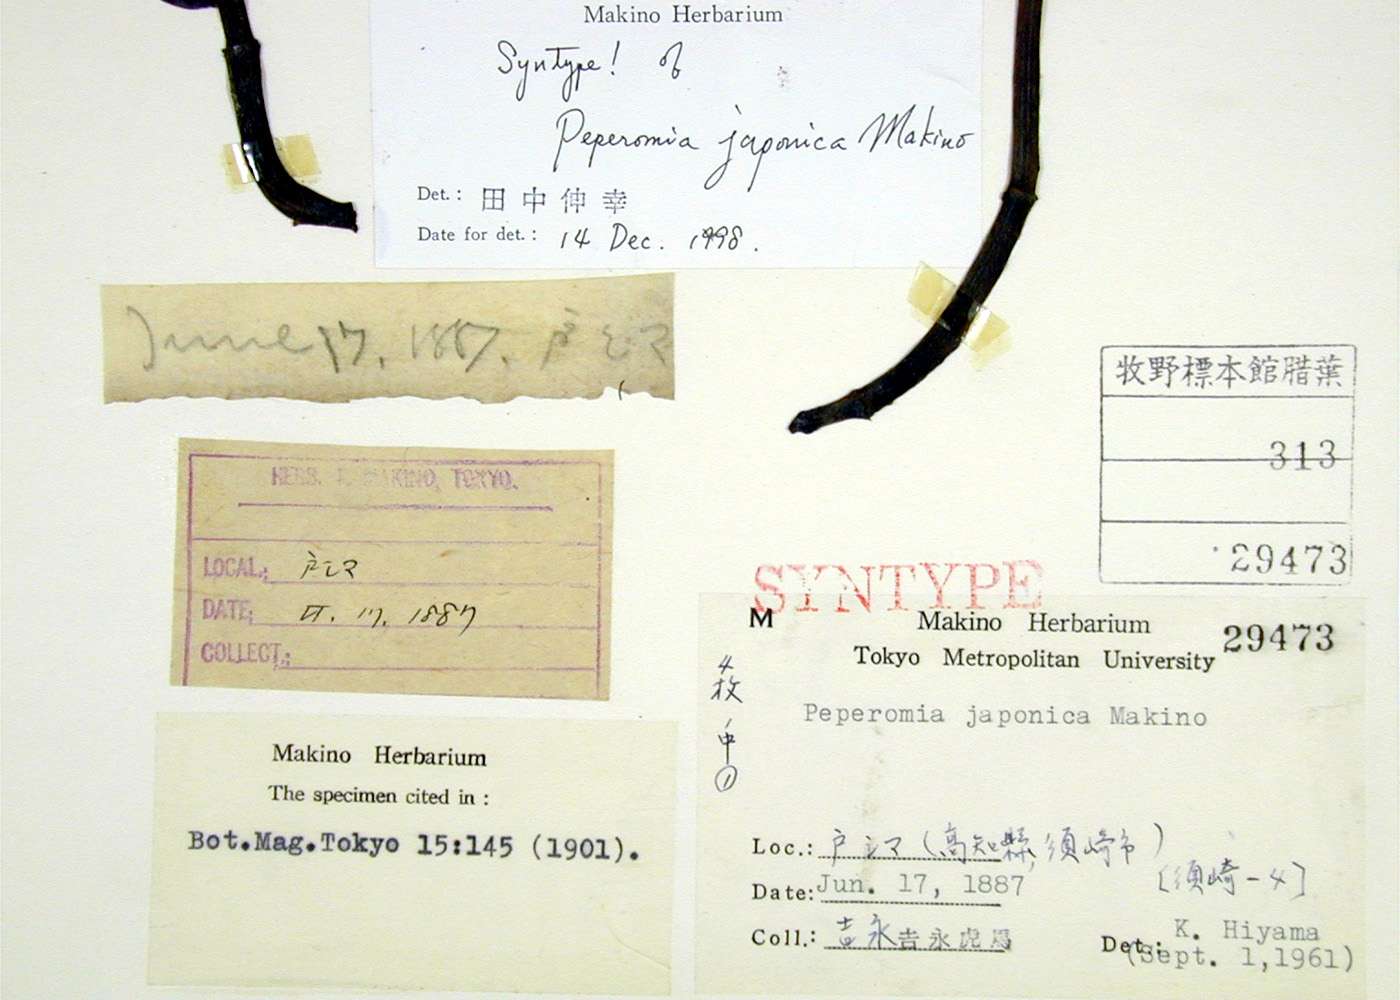 Makino Herbarium
Syntype! of
Peperomia japonica Makino
Det.: 田中伸幸
Date for det.: 14 Dec. 1998.
June 17, 1887. 戸シマ
牧野標本館腊葉
313
29473
HERB. T. MAKINO, TOKYO.
LOCAL.: 戸シマ
DATE: VI. 17. 1887
COLLECT.:
SYNTYPE
M
Makino Herbarium 29473
Tokyo Metropolitan University
4枚ノ中①
Peperomia japonica Makino
Loc.: 戸シマ (高知縣,須崎市)
[須崎-4]
Date: Jun. 17, 1887
Coll.: 吉永 吉永虎馬
Det.: K. Hiyama
(Sept. 1,1961)
Makino Herbarium
The specimen cited in :
Bot.Mag.Tokyo 15:145 (1901).